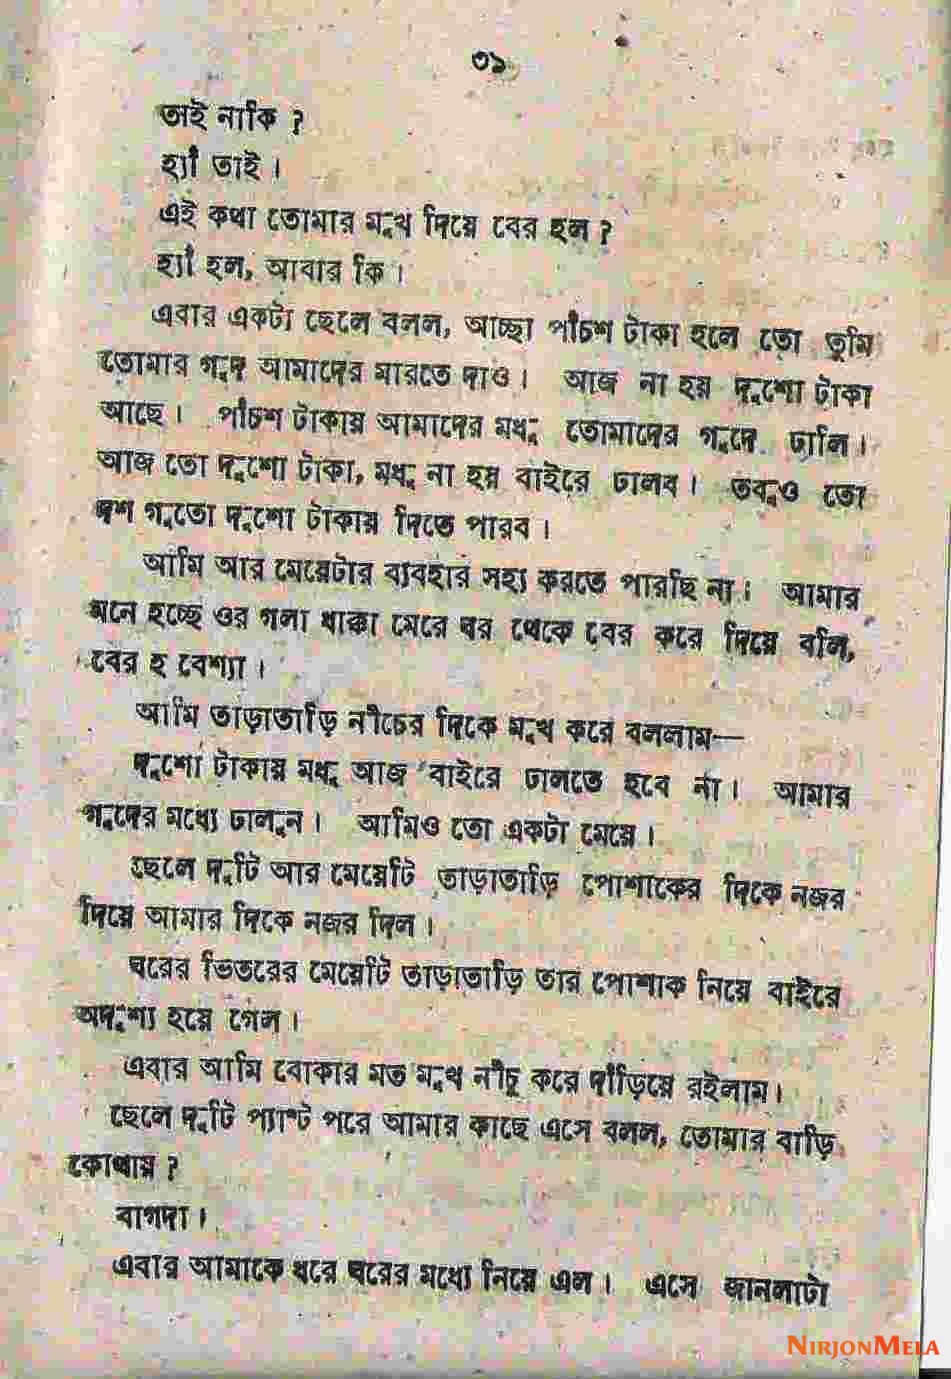 ৩১
তাই নাকি ?
হ্যাঁ তাই ।
এই কথা তোমার মুখ দিয়ে বের হল ?
হ্যাঁ হল, আবার কি ।
এবার একটা ছেলে বলল, আচ্ছা পাঁচশ টাকা হলে তো তুমি
তোমার গুদ আমাদের মারতে দাও । আজ না হয় দুশো টাকা
আছে । পাঁচশ টাকায় আমাদের মধু তোমাদের গুদে ঢালি ।
আজ তো দুশো টাকা, মধু না হয় বাইরে ঢালব । তবুও তো
দশ গুতো দুশো টাকায় দিতে পারব ।
আমি আর মেয়েটার ব্যবহার সহ্য করতে পারছি না । আমার
মনে হচ্ছে ওর গলা ধাক্কা মেরে ঘর থেকে বের করে দিয়ে বলি,
বের হ বেশ্যা ।
আমি তাড়াতাড়ি নীচের দিকে মুখ করে বললাম—
দুশো টাকায় মধু আজ বাইরে ঢালতে হবে না । আমার
গুদের মধ্যে ঢালুন । আমিও তো একটা মেয়ে ।
ছেলে দুটি আর মেয়েটি তাড়াতাড়ি পোশাকের দিকে নজর
দিয়ে আমার দিকে নজর দিল ।
ঘরের ভিতরের মেয়েটি তাড়াতাড়ি তার পোশাক নিয়ে বাইরে
অদৃশ্য হয়ে গেল ।
এবার আমি বোকার মত মুখ নীচু করে দাঁড়িয়ে রইলাম ।
ছেলে দুটি প্যান্ট পরে আমার কাছে এসে বলল, তোমার বাড়ি
কোথায় ?
বাগদা ।
এবার আমাকে ধরে ঘরের মধ্যে নিয়ে এল । এসে জানলাটা
NIRJONMELA